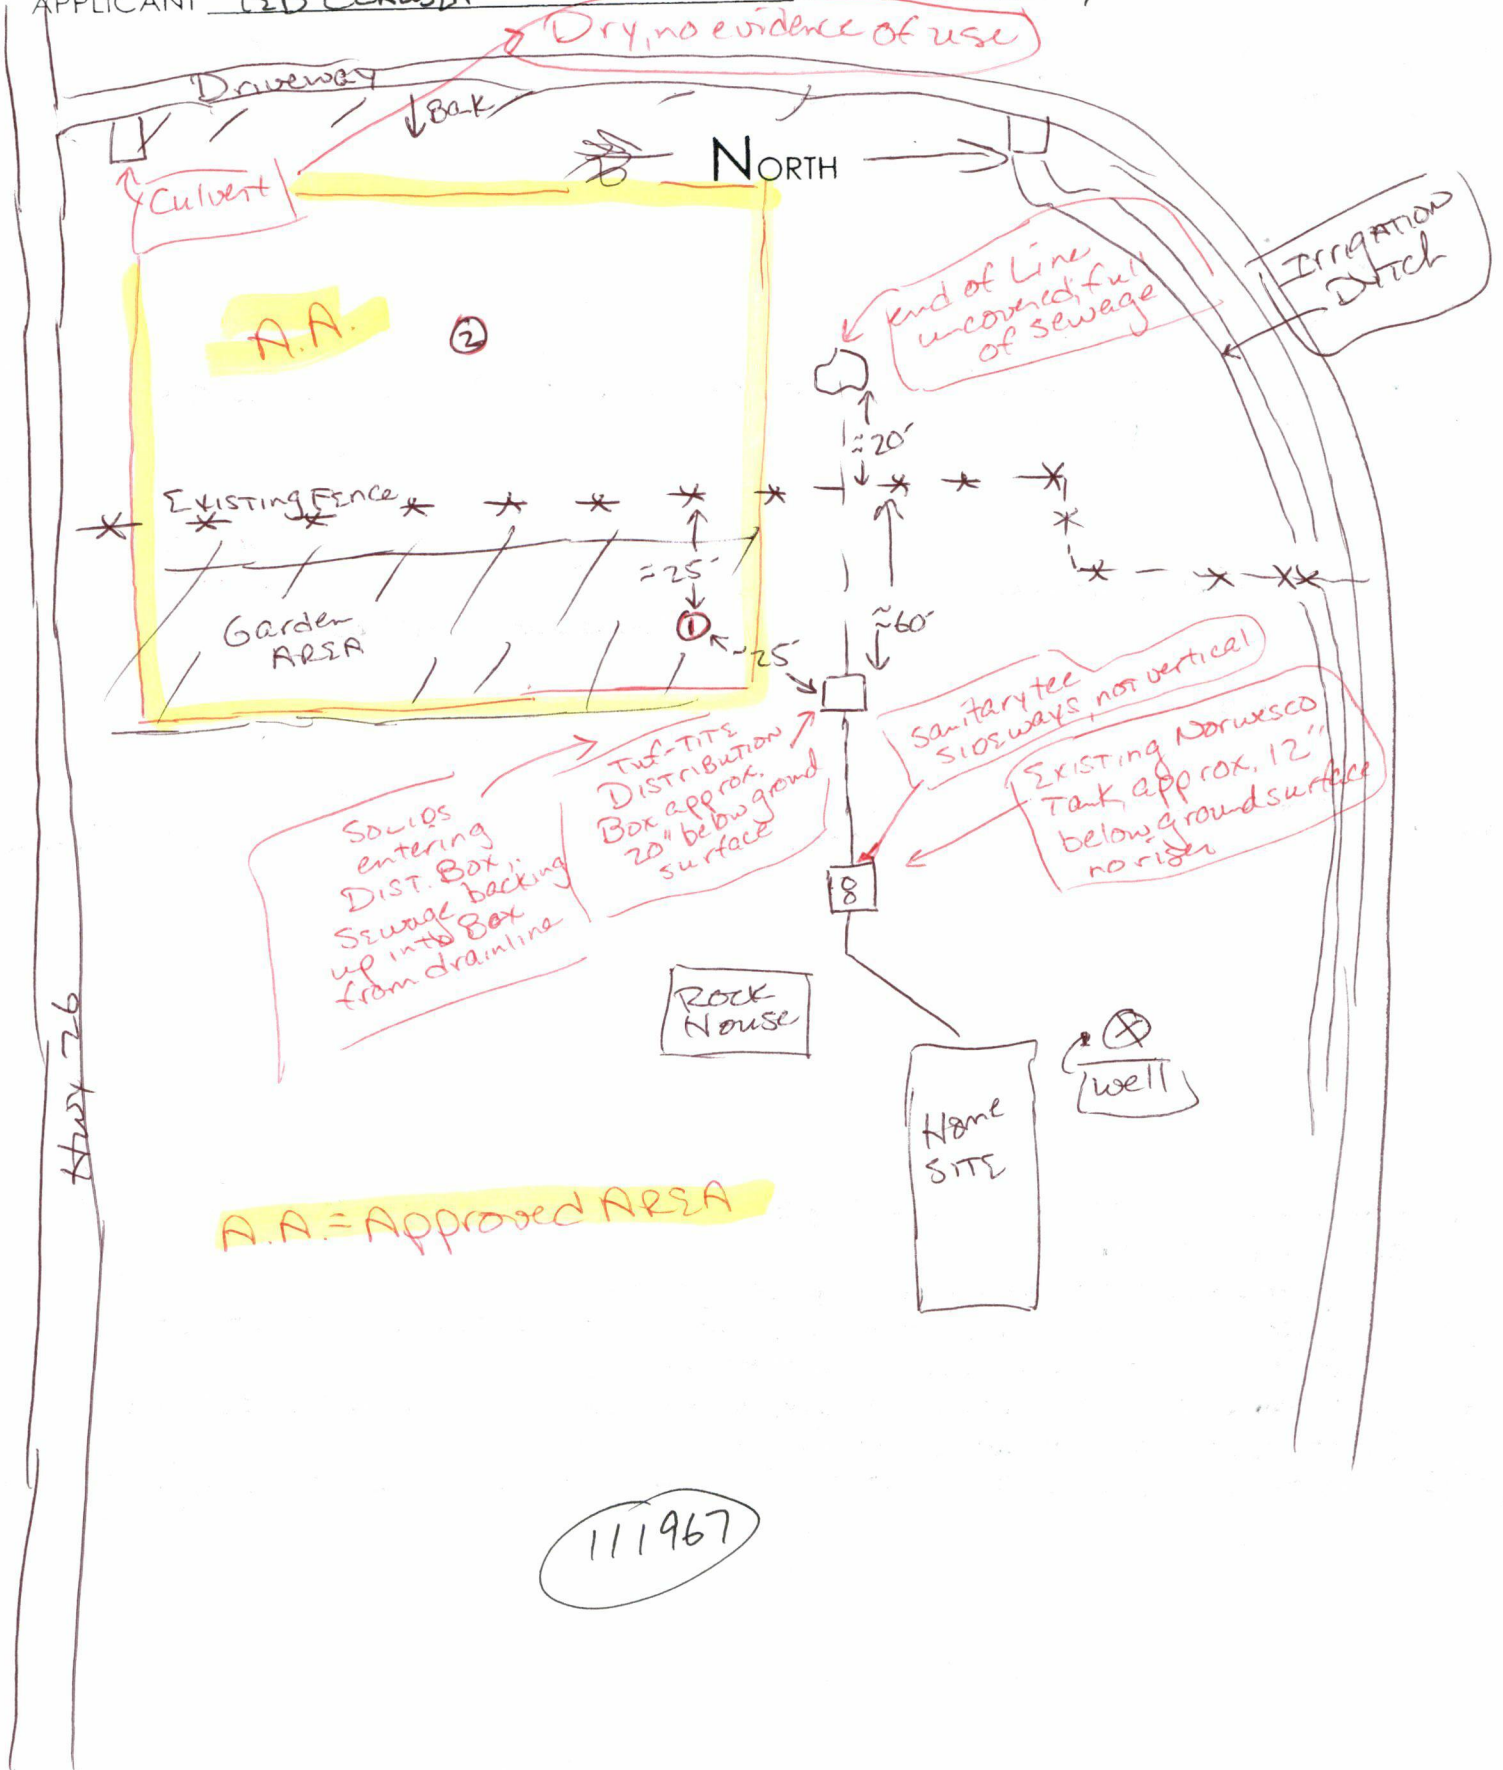 APPLICANT TED
Dry, no evidence of use
Driveway
Bak
NORTH
Culvert
Irrigation
Ditch
end of Line
uncovered, full
of sewage
A.A.
2
≈20'
Existing Fence
≈25'
≈60'
1
~25'
Garden
AREA
sanitary tee
sideways, not vertical
Existing Norwesco
Tank, approx. 12"
below ground surface
no riser
Tuf-Tite
Distribution
Box approx.
20" below ground
surface
Solids
entering
Dist. Box;
Sewage backing
up into Box
from drainline
8
Rock
House
well
Home
SITE
Hwy 26
A.A. = Approved AREA
111967